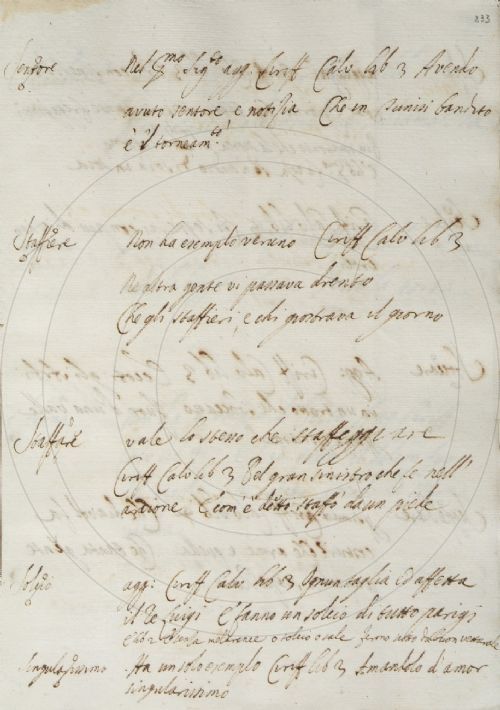 233
Sentore Nel Sig. agg. Ciriff Calv lib 3 Avendo
avuto sentore e notisia Che in Parisi bandito
è il torneam.to
Staffiere Non ha esemplo veruno Ciriff Calv lib 3
Ne altra gente vi passava drento
Che gli staffieri, e chi giostrava il giorno
Staffare vale lo stesso che staffeggiare
Ciriff Calv lib 3 Del gran sinistro che se nell'
arcione E com'è detto staffò da un piede
Solcio agg: Ciriff Calv lib 3 Ognun taglia ed affetta
il Re Luigi E fanno un solcio di tutto parigi
e lib 2 o solcio o sale
Singularissimo Ha un solo esemplo Ciriff lib 3 Amandolo d'amor
singularissimo